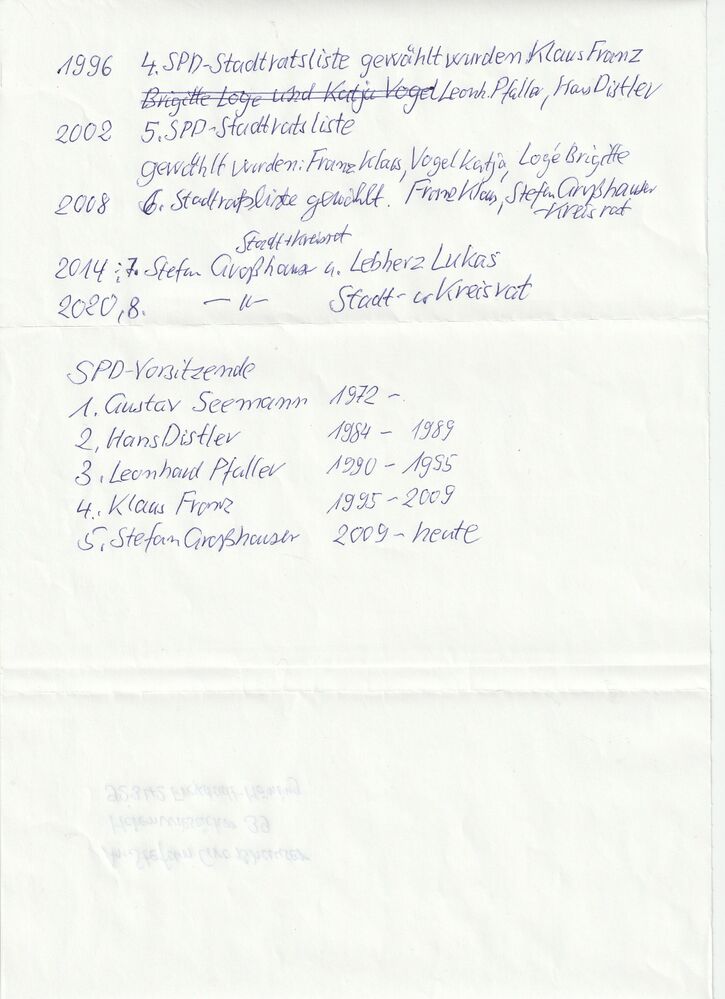 1996 4. SPD-Stadtratsliste gewählt wurden Klaus Franz
Brigitte Loge und Katja Vogel Leonh. Pfaller, Hans Distler
2002 5. SPD-Stadtratsliste
gewählt wurden: Franz Klaus, Vogel Katja, Logé Brigitte
2008 6. Stadtratsliste gewählt. Franz Klaus, Stefan Großhauser
-Kreisrat
Stadt+Kreisrat
2014 : 7. Stefan Großhauser u. Lebherz Lukas
2020, 8. — " — Stadt- u Kreisrat
SPD-Vorsitzende
1. Gustav Seemann 1972 -
2, Hans Distler 1984 - 1989
3. Leonhard Pfaller 1990 - 1995
4. Klaus Franz 1995 - 2009
5. Stefan Großhauser 2009 - heute